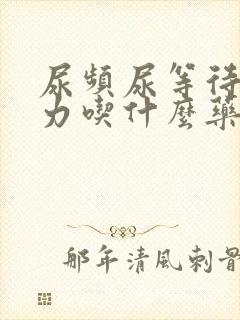 尿頻尿等待
力喫什麼藥
那年清風刺骨